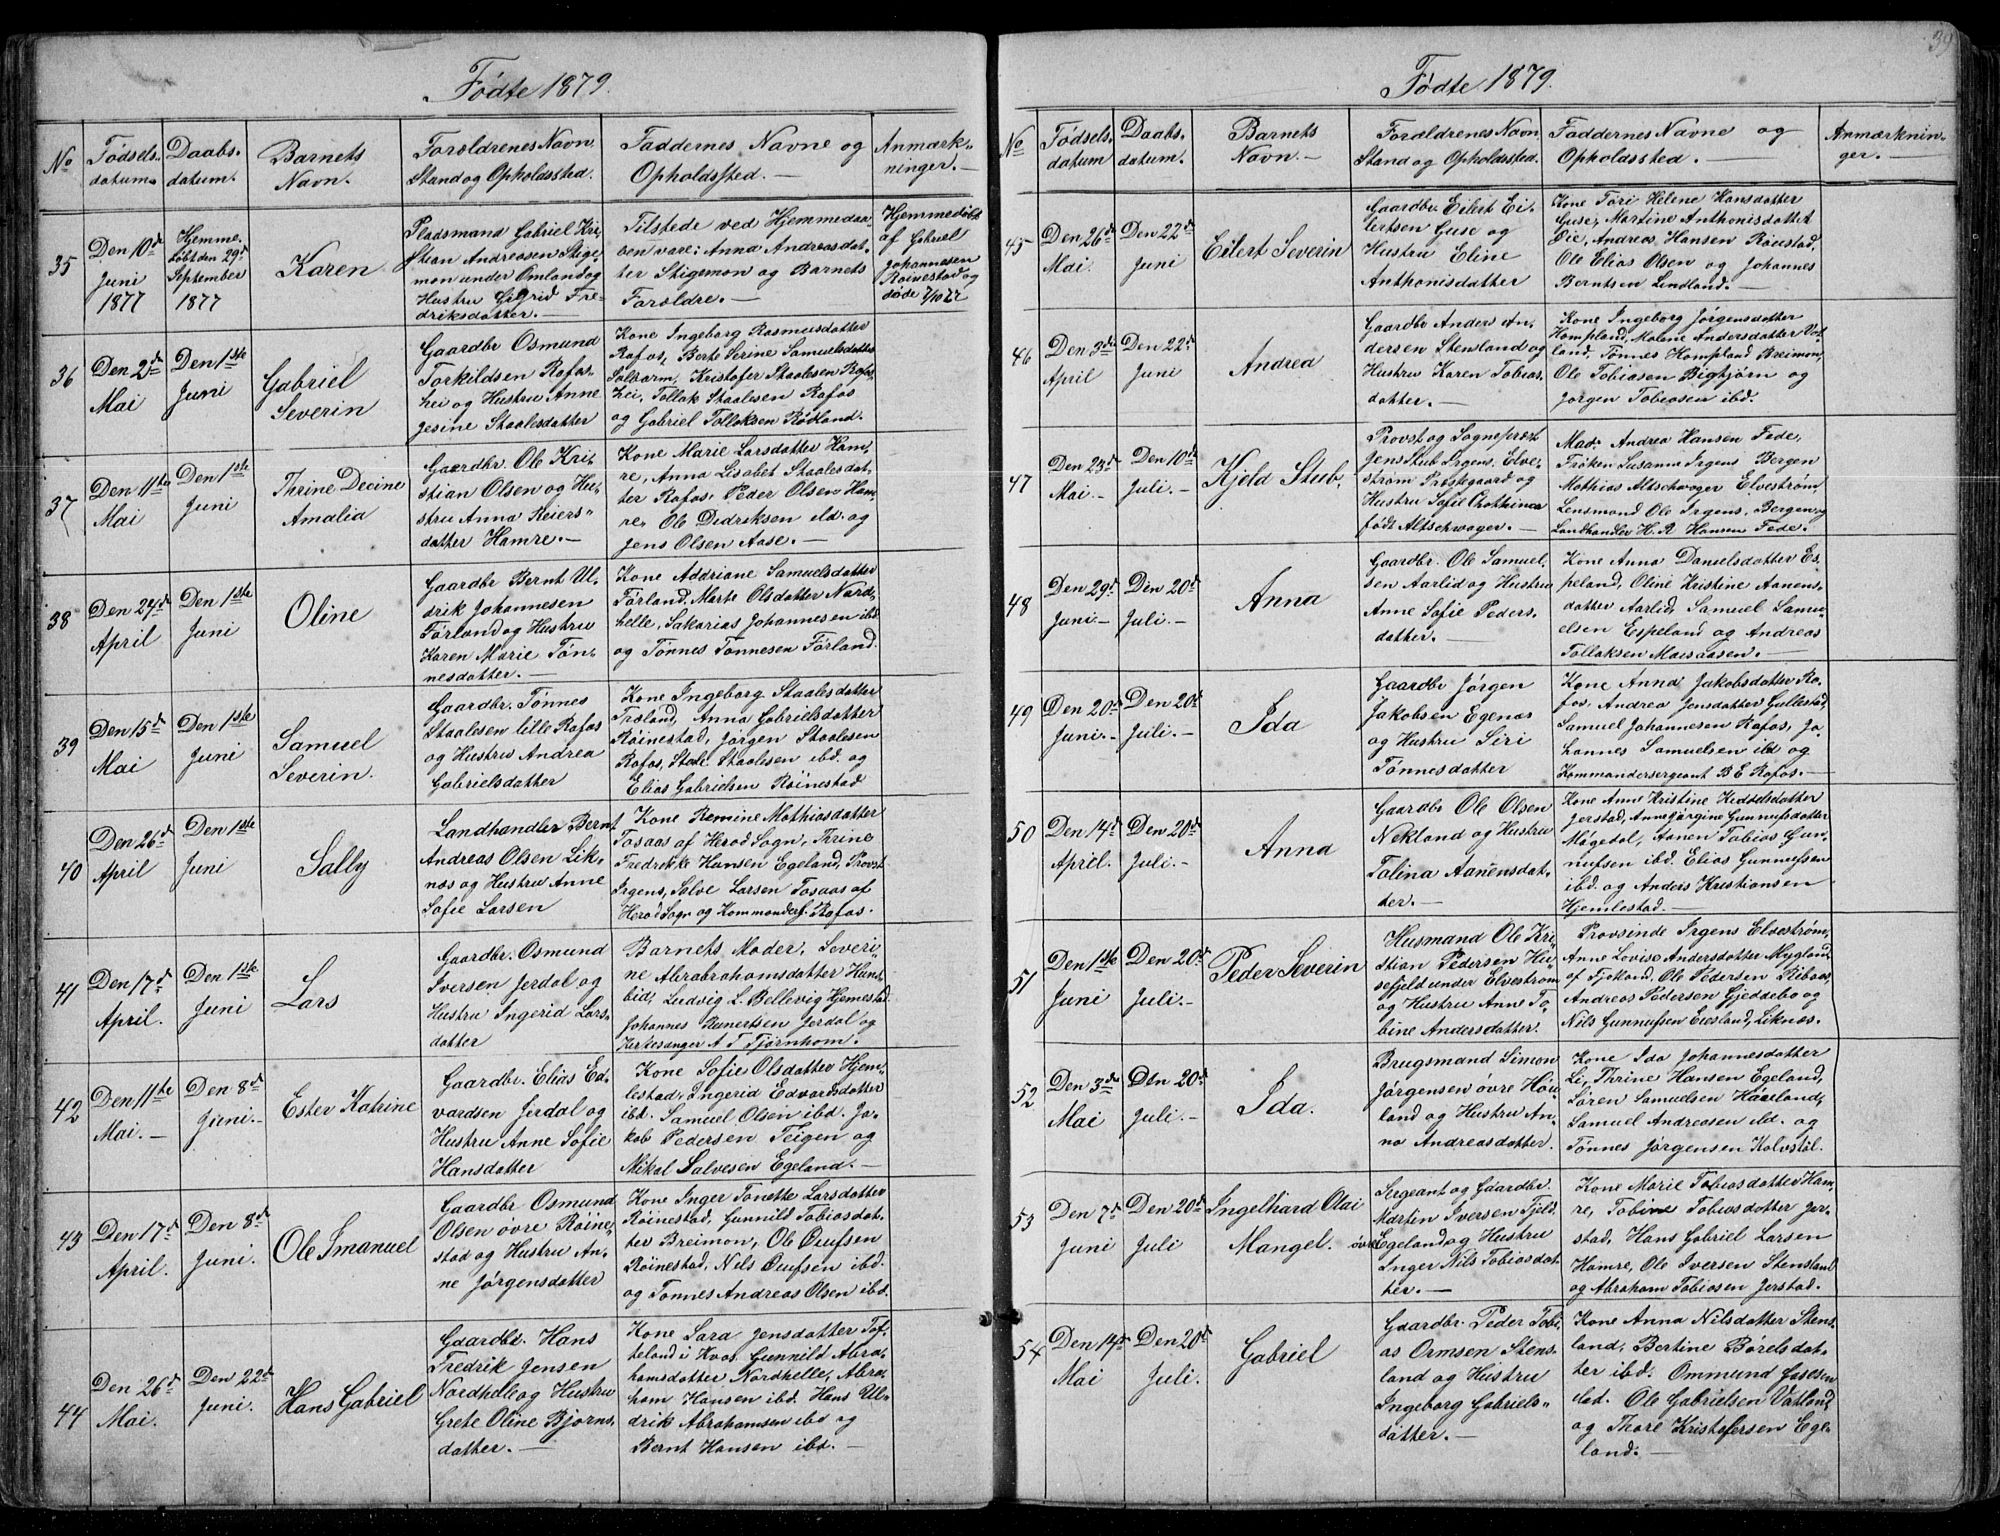 39
Fødte 1879.
No
Fødsels-
datum
Daabs-
datum.
Barnets
Navn.
Forældrenes Navn,
Stand og Opholdssted.
Faddernes Navne og
Opholdssted. —
Anmærk-
ninger. —
35
Den 10de
Juni
1877
Hjemme-
døbt den 29de
September
1877
Karen
Pladsmand Gabriel Kri-
stian Andreasen Stige-
mon under Omland og
Hustru Sigrid Fre-
driksdatter. —
Tilstede ved Hjemmedaa-
ben vare: Anna Andreasdat-
ter Stigemon og Barnets
Forældre. —
Hjemmedøbt
af Gabriel
Johannesen
Röinestad og
døde 7/10 77
36
Den 2den
Mai
Den 1ste
Juni
Gabriel
Severin
Gaardbr Osmund
Torkildsen Rafos-
hei og Hustru Anne
gesine Staalesdatter
Kone Ingeborg Rasmusdatter
Rafos, Berte Serine Samuelsdatter
Solbarm, Kristofer Staalesen Rafos-
hei, Tollak Staalesen Rafos
og Gabriel Tollaksen Rødland.
37
Den 11te
Mai
Den 1ste
Juni
Thrine Decine
Amalia
Gaardbr. Ole Kri-
stian Olsen og Hu-
stru Anna Reiers-
datter Hamre. —
Kone Marie Larsdatter Ham-
re, Anna Lisabet Staalesdat-
ter Rafos, Peder Olsen Ham-
re, Ole Didriksen ibd. og
Jens Olsen Aase. —
38
Den 24de
April
Den 1ste
Juni
Oline
Gaardbr Bernt Ul-
drik Johannesen
Førland og Hustru
Karen Marie Tøn-
nesdatter. —
Kone Addriane Samuelsdatter
Førland, Marte Olsdatter Nord-
helle, Sakarias Johannesen ibd.
og Tønnes Tønnesen Førland.
39
Den 15de
Mai
Den 1ste
Juni
Samuel
Severin.
Gaardbr. Tønnes
Staalesen lille Rafos
og Hustru Andrea
Gabrielsdatter
Kone Ingeborg Staalesdatter
Træland, Anna Gabrielsdatter
Röinestad, Jørgen Staalesen
Rafos, Staale Staalesen ibd. og
Elias Gabrielsen Röinestad
40
Den 26de
April
Den 1ste
Juni
Sally
Landhandler Bernt
Andreas Olsen Lik-
næs og Hustru Anne
Sofie Larsen
Kone Remine Mathiasdatter
Tosaas af Herod Sogn, Thrine
Fredrikke Hansen Egeland, Provst
Irgens, Salve Larsen Tosaas af
Herod Sogn og Kommanders. Rafos.
41
Den 17de
April.
Den 1ste
Juni
Lars
Gaardbr. Osmund
Iversen Jerdal og
Hustru Ingerid Lars-
datter
Barnets Moder, Severi-
ne Abrabrahamsdatter Hand-
bid, Ludvig L. Bellevig Hjemestad
Johannes Reinertsen Jerdal og
Kirkesanger A. T. Tjørnhom.
42
Den 11te
Mai. —
Den 8de
Juni. —
Ester Katrine
Gaardbr. Elias Ed-
vardsen Jerdal og
Hustru Anne Sofie
Hansdatter
Kone Sofie Olsdatter Hjem-
lestad, Ingerid Edvardsdatter
ibd. Samuel Olsen ibd. Ja-
kob Pedersen Teigen og
Mikal Salvesen Egeland. —
43
Den 17de
April.
Den 8de
Juni.
Ole Imanuel
Gaardbr Osmund
Olsen øvre Röine-
stad og Hustru An-
ne Jørgensdatter
Kone Inger Tonette Larsdatter
Röinestad, Gunnild Tobiasdat-
ter Breimon, Ole Oufsen
Röinestad, Nils Oufsen ibd.
og Tønnes Andreas Olsen ibd.
44
Den 26de
Mai.
Den 22de
Juni.
Hans Gabriel
Gaardbr. Hans
Fredrik Jensen
Nordhelle og Hustru
Grete Oline Bjørns-
datter. —
Kone Sara Jensdatter Tof-
teland i Kvas, Gunnild Abra-
hamsdatter Nordhelle, Abra-
ham Hansen ibd. Hans Ul-
drik Abrahamsen ibd og
Bernt Hansen ibd. —
Fødte 1879.
No
Fødsels-
datum
Daabs-
datum.
Barnets
Navn. —
Forældrenes Navn
Stand og Opholdssted.
Faddernes Navne og
Opholdssted. —
Anmærknin-
ger. —
45
Den 26de
Mai
Den 22de
Juni
Eilert Severin
Gaardbr. Eilert Ei-
lertsen Guse og
Hustru Eline
Anthonisdatter
Kone Tori Helene Hansdatter
Guse, Martine Anthonisdatter
Øie, Andreas Hansen Röiestad,
Ole Elias Olsen og Johannes
Berntsen Lindland. —
46
Den 3de
April
Den 22de
Juni
Andrea
Gaardbr Anders An-
dersen Stensland og
Hustru Karen Tobias-
datter. —
Kone Ingeborg Jørgensdatter
Hompland, Malene Andersdatter Vat-
land, Tønnes Hompland Breimon,
Ole Tobiasen Bigtjørn og
Jørgen Tobiasen ibd.
47
Den 23de
Mai. —
Den 10de
Juli. —
Kjeld Stub.
Provst og Sogneprest
Jens Stub Irgens, Elve-
strøm Præstegaard og
Hustru Sofie Cathinca
født Altschwager. —
Mad. Andrea Hansen Fede,
Frøken Susanna Irgens Bergen
Mathias Altschwager Elvestrøm,
Lensmand Ole Irgens, Bergen og
Landhandler H. R. Hansen Fede.
48
Den 29de
Juni. —
Den 20de
Juli. —
Anna
Gaardbr. Ole Samuel-
sen Aarlid og Hustru
Anne Sofie Peders-
datter. —
Kone Anna Danielsdatter Es-
peland, Oline Kristine Aanens-
datter Aarlid, Samuel Samu-
elsen Espeland og Andreas
Tollaksen Maisaasen. —
49
Den 20de
Juni. —
Den 20de
Juli. —
Ida
Gaardbr Jørgen
Jakobsen Egenæs
og Hustru Siri
Tønnesdatter
Kone Anna Jakobsdatter Ra-
fos, Andrea Jensdatter Gullestad,
Samuel Johannesen Rafos, Jo-
hannes Samuelsen ibd og
Kommandersergeant B. E. Rafos. —
50
Den 14de
April.
Den 20de
Juli. —
Anna
Gaardbr Ole Olsen
Nekland og Hustru
Talina Aanensdat-
ter. —
Kone Anne Kristine Heddelsdatter
Jerstad, Anne Gürgine Gunnufsdatter
Mögedal, Aanen Tobias Gun-
nufsen ibd. Elias Gunnufsen
ibd. og Anders Kristiansen
Hjemlestad. —
51
Den 1ste
Juni
Den 20de
Juli. —
Peder Severin
Husmand Ole Kri-
stian Pedersen Hu-
sefjeld under Elvestrøm
og Hustru Anne To-
bine Andersdatter.
Provsinde Irgens Elvestrøm,
Anne Lovise Andersdatter Mygland
af Fjotland, Ole Pedersen Ribaas,
Andreas Pedersen Gjeddebo og
Nils Gunnufsen Eiesland, Liknæs.
52
Den 3de
Mai
Den 20de
Juli. —
Ida.
Brugsmand Simon
Jørgensen øvre Höi-
land og Hustru An-
na Andreasdatter.
Kone Ida Johannesdatter
Li, Thrine Hansen Egeland,
Søren Samuelsen Haaland,
Samuel Andreasen ibd. og
Tønnes Jørgensen Kalvstøl.
53
Den 7de
Juni
Den 20de
Juli
Ingelhard Olai
Mangel.
Sergeant og Gaardbr.
Martin Iversen Fjeld
øvre Egeland og Hustru
Inger Nils Tobiasdat-
ter. —
Kone Marie Tobiasdatter Ham-
re, Tobine Tobiasdatter Jer-
stad, Hans Gabriel Larsen
Hamre, Ole Iversen Stensland
og Abraham Tobiasen Jerstad.
54
Den 14de
Mai
Den 20de
Juli.
Gabriel
Gaardbr. Peder Tobi-
as Ormsen Stens-
land og Hustru
Ingeborg Gabriels-
datter. —
Kone Anna Nilsdatter Stens-
land, Bertine Börelsdat-
ter ibd. Ommund Gasesen
ibd. Ole Gabrielsen Vatland
og Thore Kristofersen Ege-
land. —